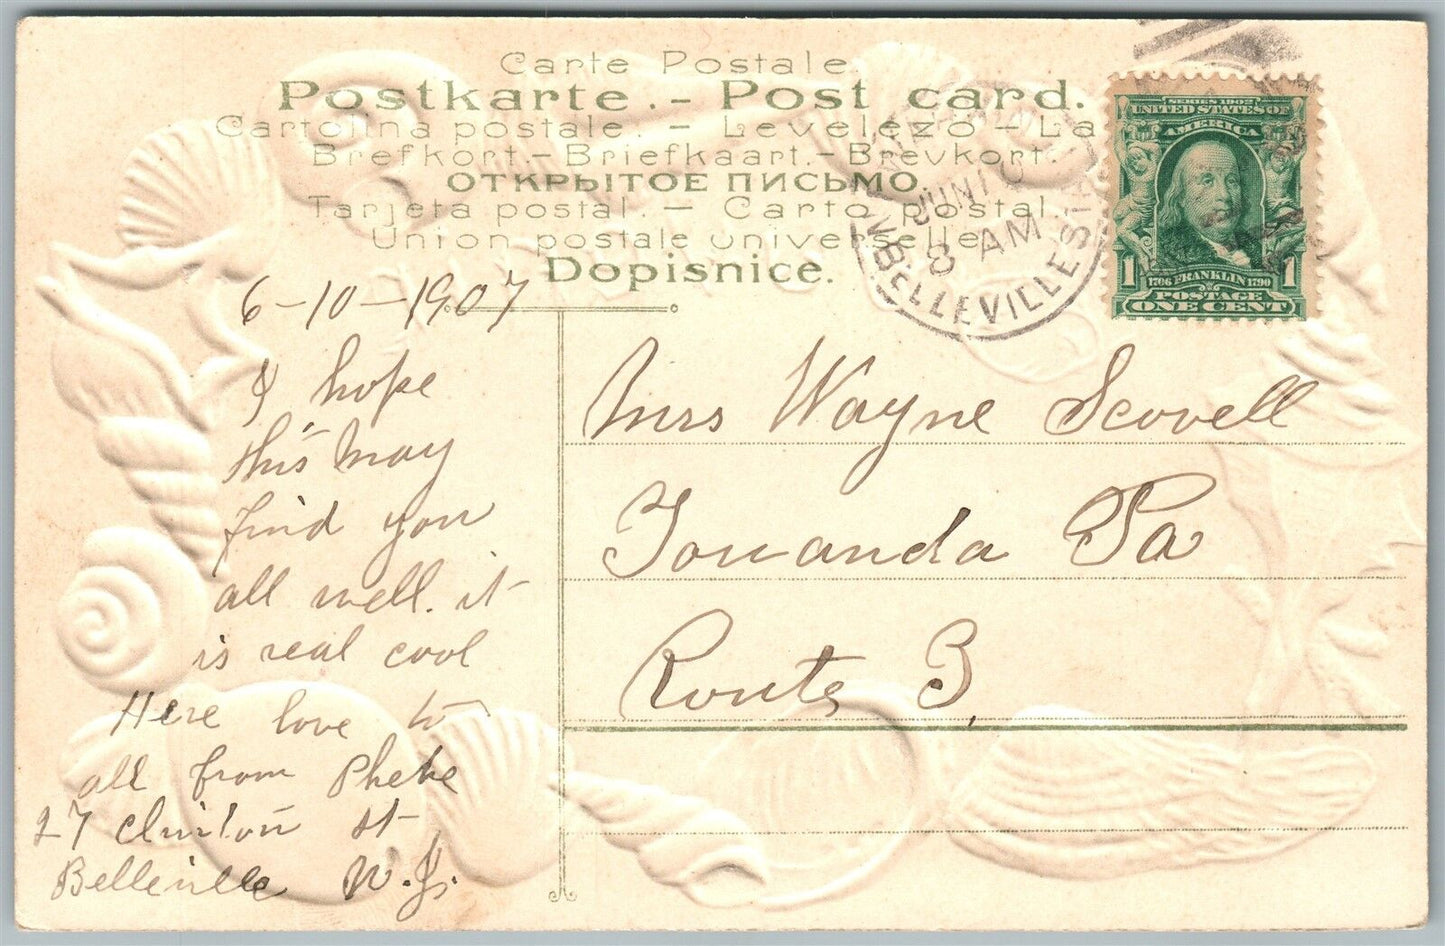 Carte Postale.
Postkarte.- Post card.
Cartolina postale. - Levelezo - La
Brefkort.- Briefkaart.- Brevkort.
ОТКРЫТОЕ ПИСЬМО.
Tarjeta postal. - Carto postal.
Union postale universelle
Dopisnice.
JUN 10
8 AM
BELLEVILLE STA
SERIES 1902
UNITED STATES OF
AMERICA
1 1706 FRANKLIN 1790 1
POSTAGE
ONE CENT
6-10-1907
I hope
this may
find you
all well. it
is real cool
Here love to
all from Phebe
27 Clinton st
Belleville N.J.
Mrs Wayne Scovell
Towanda Pa
Route 3,